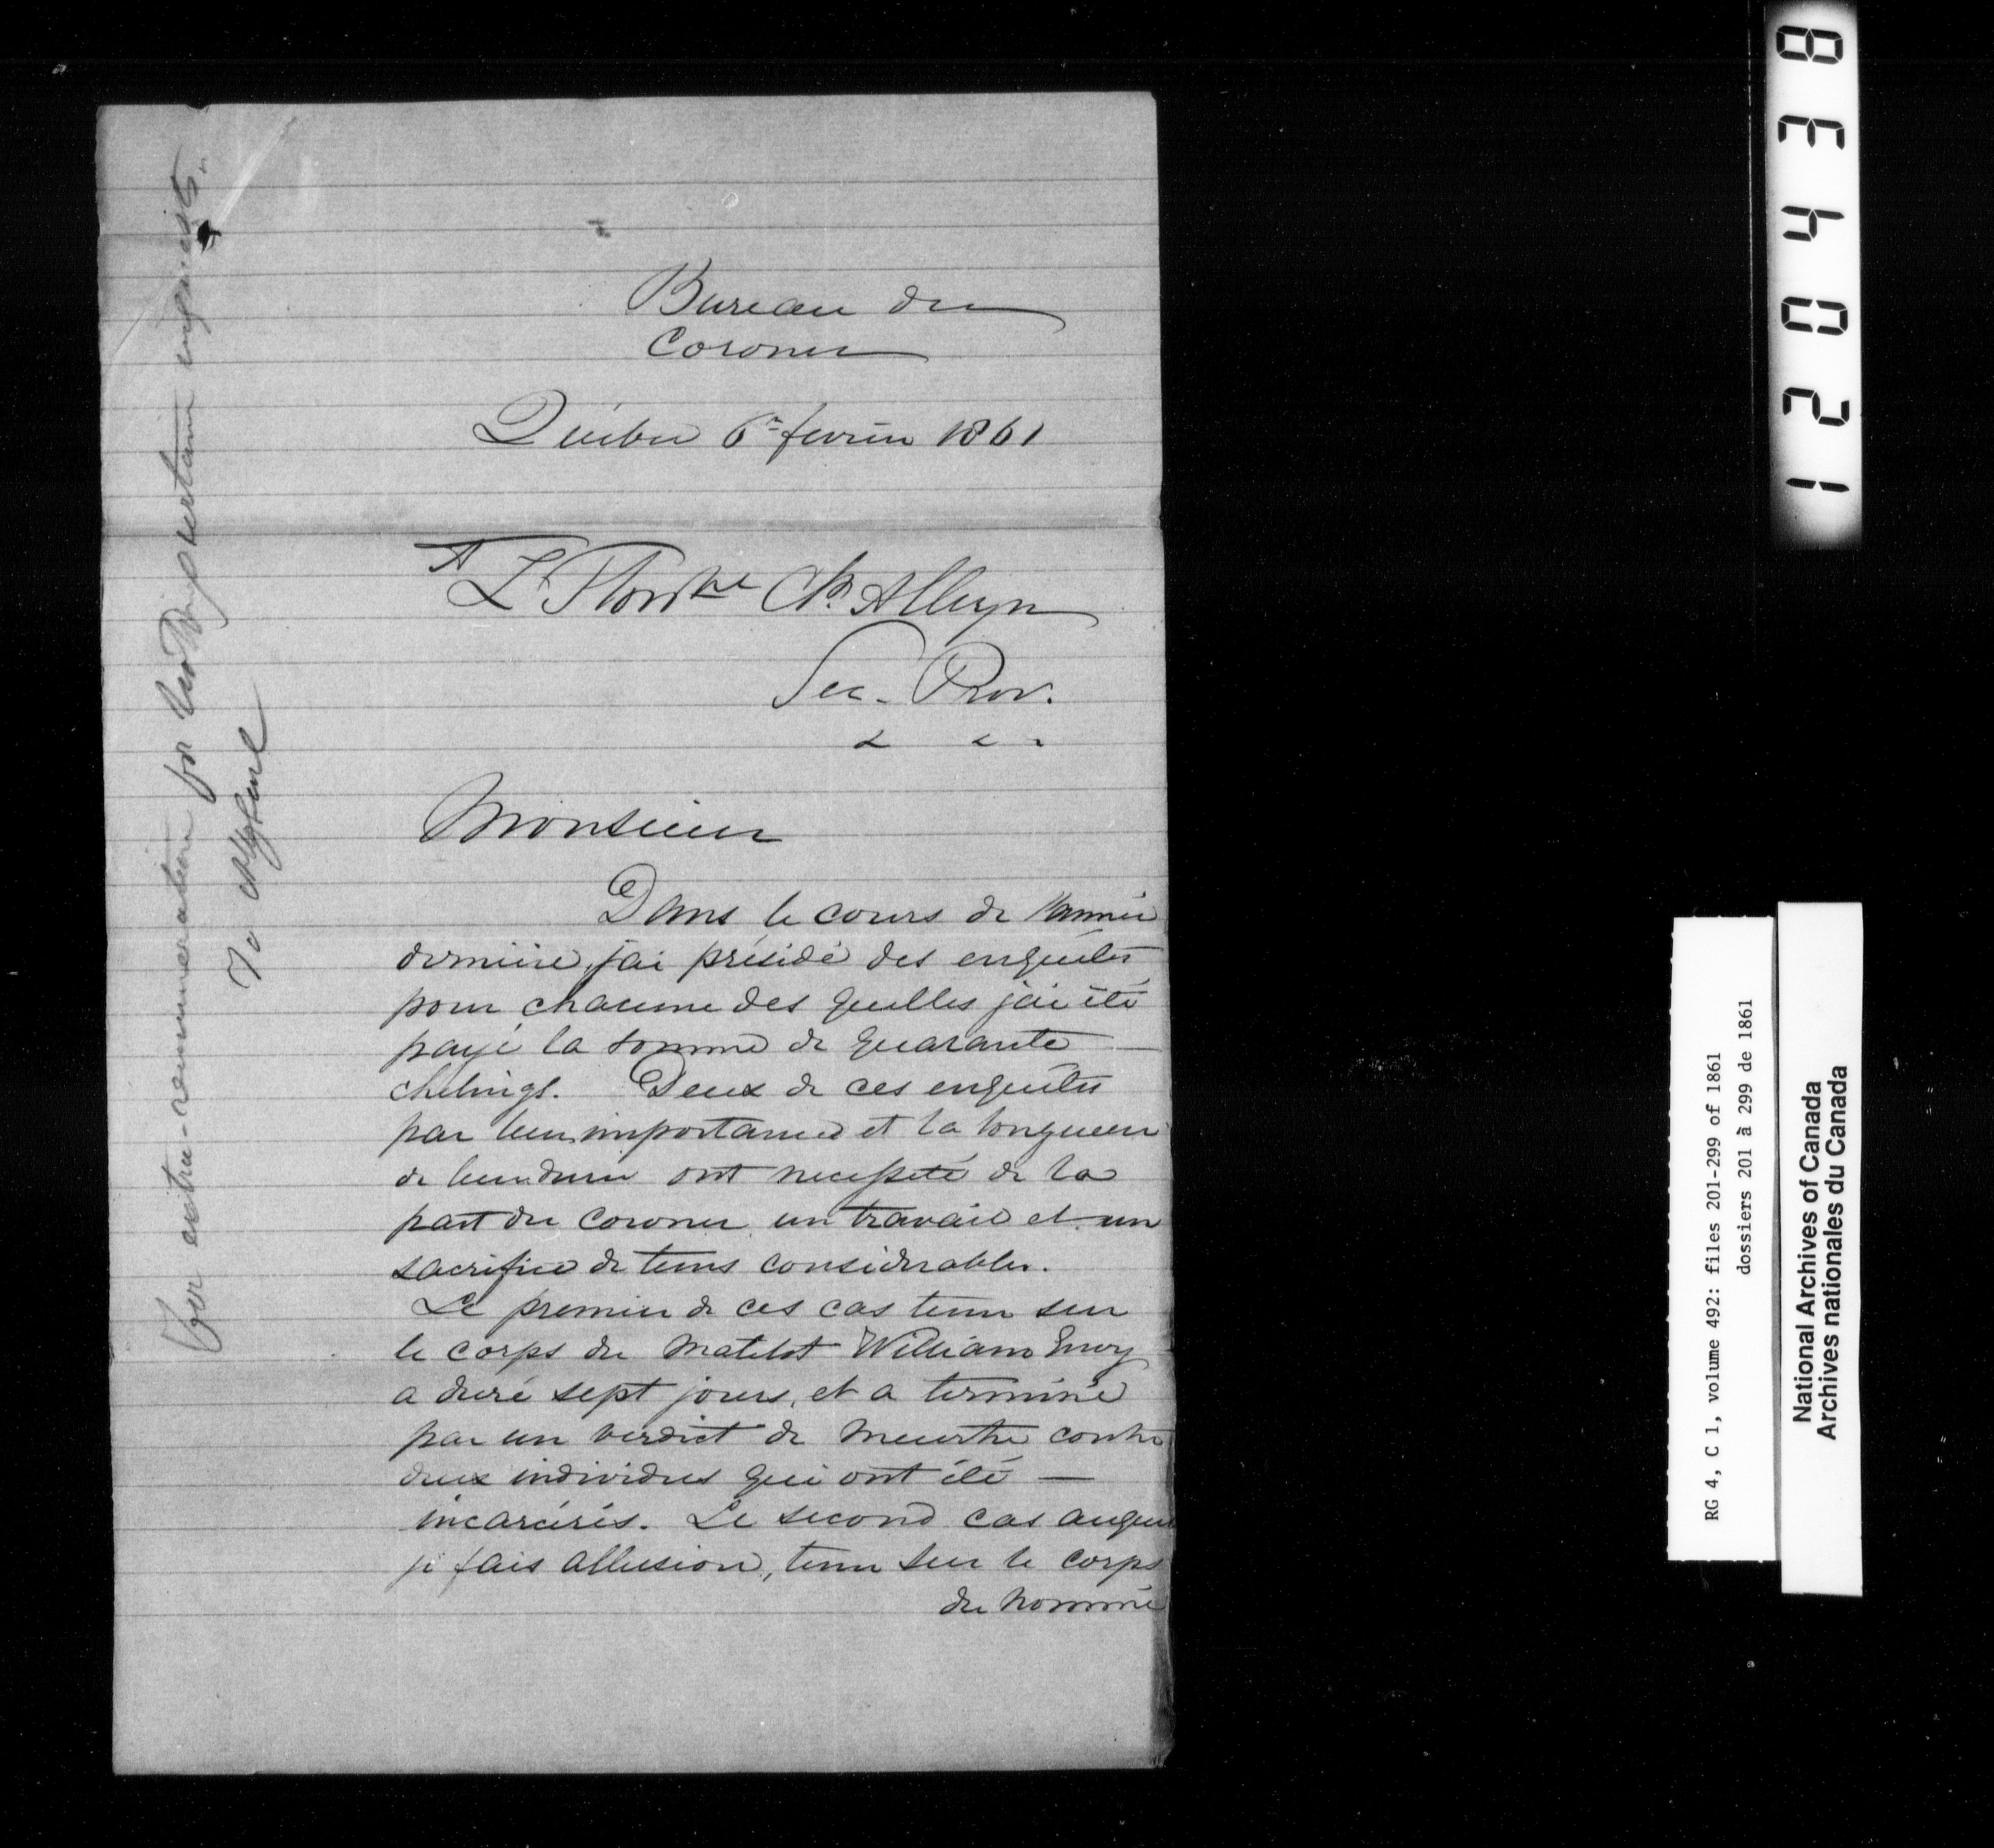 Bureau du
Coroner
Québec 6 fevrier 1861
A L'Honble Chs Alleyn
Sec. Prov.
Monsieur
Dans le cours de l'année
dernière, j'ai présidé des enquêtes
pour chacune des quelles j'ai été
payé la somme de quarante
chelings. Deux de ces enquêtes
par leur importance et la longueur
de leur durée ont necessité de la
part du Coroner un travail et un
sacrifice de tems considerables.
Le premier de ces cas tenu sur
le corps du matelot William
a duré sept jours, et a terminé
par un verdict de meurtre contre
deux individus qui ont été
incarcérés. Le second cas auquel
je fais allusion, tenu sur le corps
du nommé
For extra-remuneration for two important inquests.
To
120438
RG 4, C 1, volume 492: files 201-299 of 1861
dossiers 201 à 299 de 1861
National Archives of Canada
Archives nationales du Canada